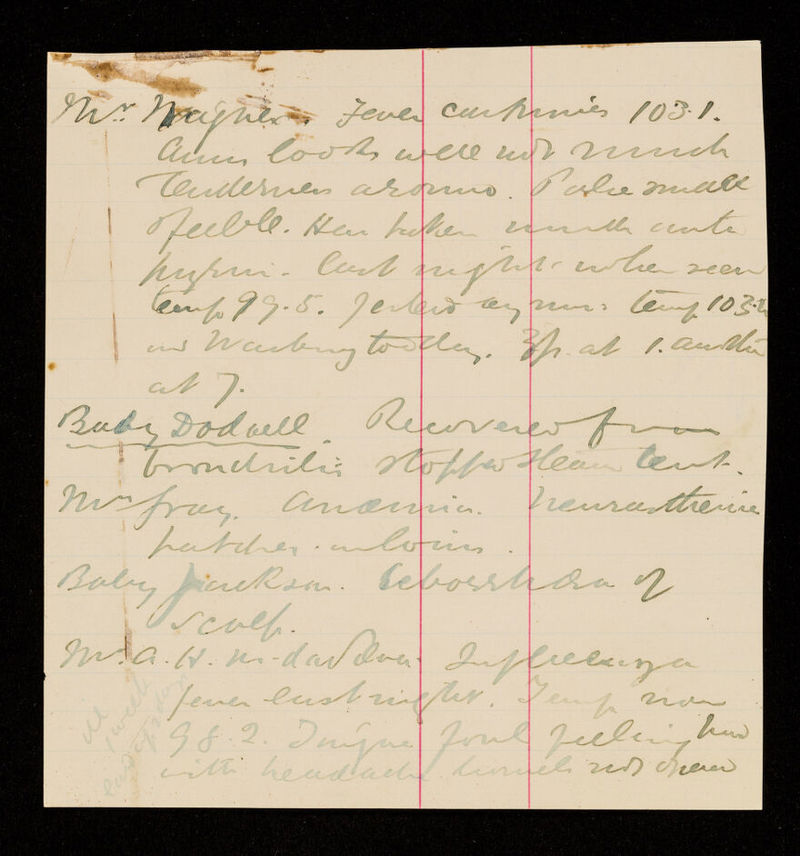 Mr. Wagner. Fever continues 103.1.
Arm looks well not much
tenderness around. Pulse small
& feeble. Has taken much anti
pyrin. last night when seen
temp 99.5. temp 103.
at 1. another
at 7.
Baby Dodwell. Recovered from
bronchitis stopped steam tent.
Mrs Gray. Anaemia. Neurasthenia
patches.
Baby Jackson. Seborrhoea of
scalp.
Mr. A. H. Influenza
fever last night. Temp now
98.2. Tongue foul feeling
with headache bowels not open
ill
1 week